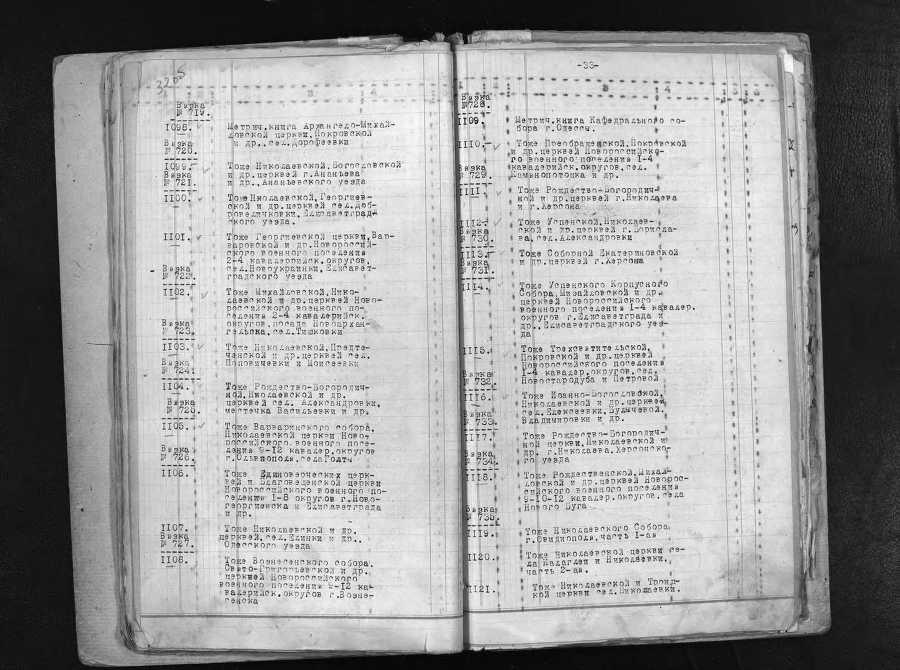 3265
1 2 3 4
Вязка
№ 719.
1098. Метрич.книга Архангело-Михай-
ловской церкви,Покровской
и др.,сел.Дорофеевки
Вязка
№ 720.
1099. Тоже Николаевской,Богословской
и др.церквей г.Ананьева
и др.,Ананьевского уезда
Вязка
№ 721.
1100. Тоже Николаевской,Георгиев-
ской и др.церквей сел.Доб-
ровеличковки,Елисаветград-
ского уезда.
1101. Тоже Георгиевской церкви,Вар-
варовской и др.Новороссий-
ского военного поселения
2-4 кавалерийск.округов,
сел.Новоукраинки,Елисавет-
градского уезда
Вязка
№ 722.
1102. Тоже Михайловской,Нико-
лаевской и др.церквей Ново-
российского военного по-
селения 2-4 кавалерийск.
округов,посада Новоархан-
гельска,сел.Тишковки
Вязка
№ 723.
1103. Тоже Николаевской,Предте-
ченской и др.церквей сел.
Поповичевки и Моисеевки
Вязка
№ 724.
1104. Тоже Рождество-Богородич-
ной,Николаевской и др.
церквей сел. Александровки,
местечка Васильевки и др.
Вязка
№ 725.
1105. Тоже Варваринского собора,
Николаевской церкви Ново-
российского военного посе-
ления 9-12 кавалер.округов
г.Ольвиополя,села Голты
Вязка
№ 726.
1106. Тоже Единоверческих церк-
вей и Благовещенской церкви
Новороссийского военного по-
селения 1-8 округов г.Ново-
георгиевска и Елисаветграда
и др.
1107. Тоже Николаевской и др.
церквей,сел.Блинки и др.,
Одесского уезда
Вязка
№ 727.
1108. Тоже Вознесенского собора,
Свято-Григорьевской и др.
церквей Новороссийского
военного поселения 9-12 ка-
валерийск.округов г.Возне-
сенска
-33-
1 2 3 4
Вязка
№ 728.
1109. Метрич.книга Кафедрального со-
бора г.Одессы.
1110. Тоже Преображенской,Покровской
и др.церквей Новороссийско-
го военного поселения 1-4
кавалерийск.округов,сел.
Каменнопотоцка и др.
Вязка
№ 729.
1111. Тоже Рождество-Богородич-
ной и др.церквей г.Николаева
и г.Херсона
1112. Тоже Успенской,Николаев-
ской и др.церквей г.Борисла-
ва,сел.Александровки
Вязка
№ 730.
1113. Тоже Соборной Екатериновской
и др.церквей г.Херсона
Вязка
№ 731.
1114. Тоже Успенского Корпусного
Собора,Михайловской и др.
церквей Новороссийского
военного поселения 1-4 кавалер.
округов г.Елисаветграда и
др.,Елисаветградского уез-
да
1115. Тоже Трехсвятительской,
Покровской и др.церквей
Новороссийского поселения
1-4 кавалер.округов,сел.
Новостародуба и Петровой
Вязка
№ 732.
1116. Тоже Иоанно-Богословской,
Николаевской и др.церквей
сел.Елисеевки,Булычевой,
Владимировки и др.
Вязка
№ 733.
1117. Тоже Рождество-Богородич-
ной церкви,Николаевской и
др. г.Николаева,Херсонско-
го уезда
Вязка
№ 734.
1118. Тоже Рождественской,Михай-
ловской и др.церквей Новорос-
сийского военного поселения
9-10-12 кавалер.округов,села
Нового Буга
Вязка
№ 735.
1119. Тоже Николаевского Собора
г.Овидиополя,часть 1-ая
1120. Тоже Николаевской церкви се-
ла Калаглеи и Николаевки,
часть 2-ая.
1121. Тоже Николаевской и Троиц-
кой церкви сел.Николаевки.